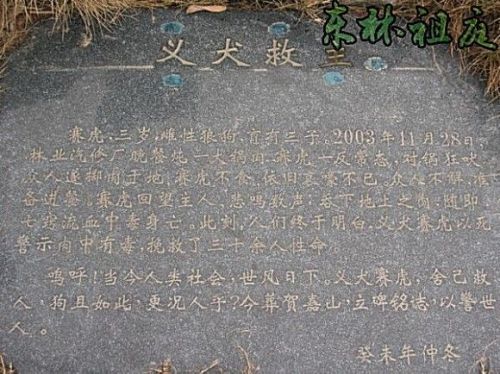 东林祖庭
义犬救主
赛虎,三岁,雌性狼狗,育有三子。2003年11月28日,
林业汽修厂晚餐炖一大锅肉,赛虎一反常态,对锅狂吠
众人遂掷肉于地,赛虎不食,依旧哀嚎不已。众人不解,准
备进食,赛虎回望主人,悲鸣数声,吞下地上之肉,随即
七窍流血中毒身亡。此刻,人们终于明白,义犬赛虎以死
警示肉中有毒,挽救了三十余人性命。
呜呼!当今人类社会,世风日下。义犬赛虎,舍己救
人,狗且如此,更况人乎?今葬贺嘉山,立碑铭志,以警世
人。
癸未年仲冬